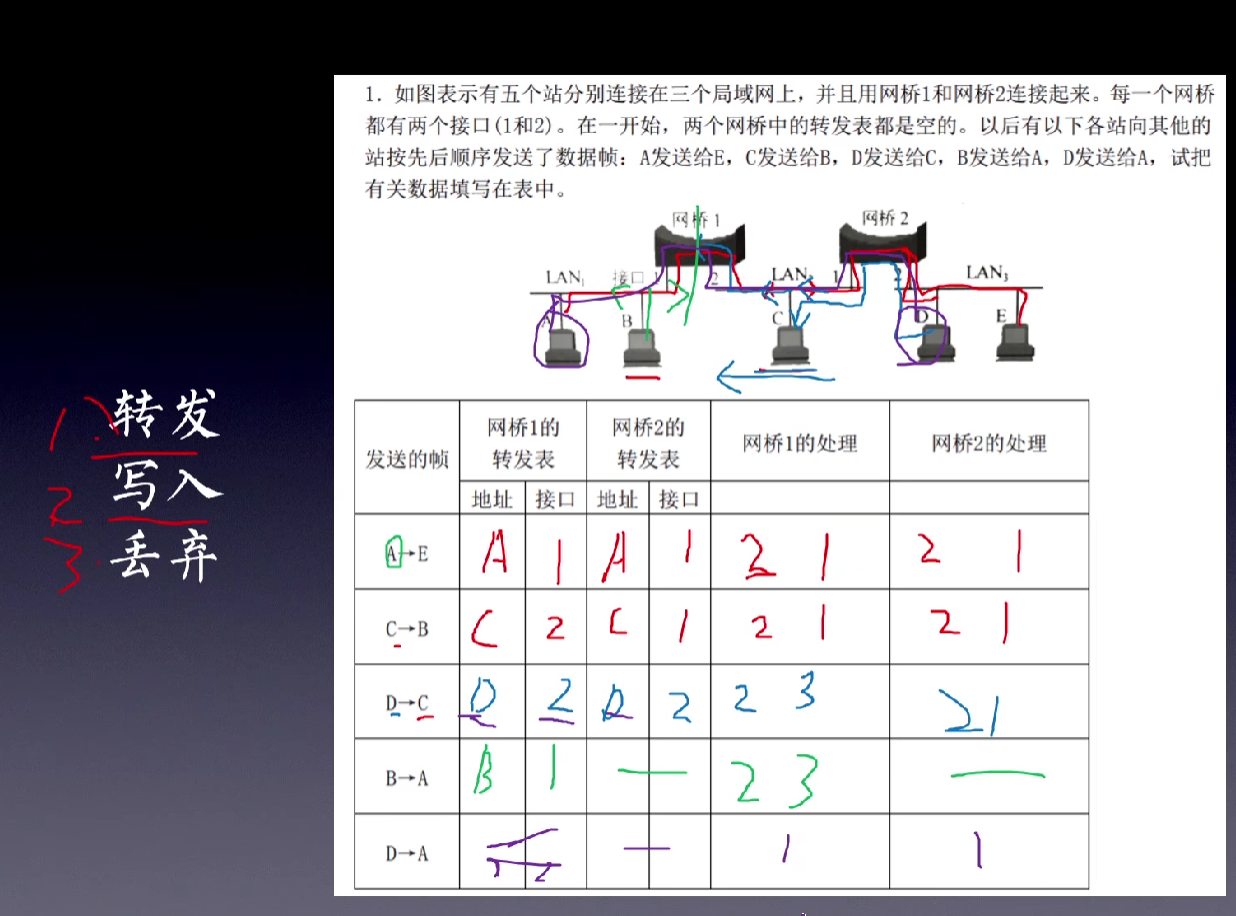 1. 如图表示有五个站分别连接在三个局域网上，并且用网桥1和网桥2连接起来。每一个网桥
都有两个接口(1和2)。在一开始，两个网桥中的转发表都是空的。以后有以下各站向其他的
站按先后顺序发送了数据帧：A发送给E，C发送给B，D发送给C，B发送给A，D发送给A，试把
有关数据填写在表中。
网桥 1 网桥 2
LAN₁ 接口 1 2 LAN₂ 1 2 LAN₃
A B C D E
1. 转发
2 写入
3 丢弃
发送的帧 网桥1的转发表 网桥2的转发表 网桥1的处理 网桥2的处理
地址 接口 地址 接口
A→E A 1 A 1 2 1 2 1
C→B C 2 C 1 2 1 2 1
D→C D 2 D 2 2 3 2 1
B→A B 1 — 2 3 —
D→A — 1 1